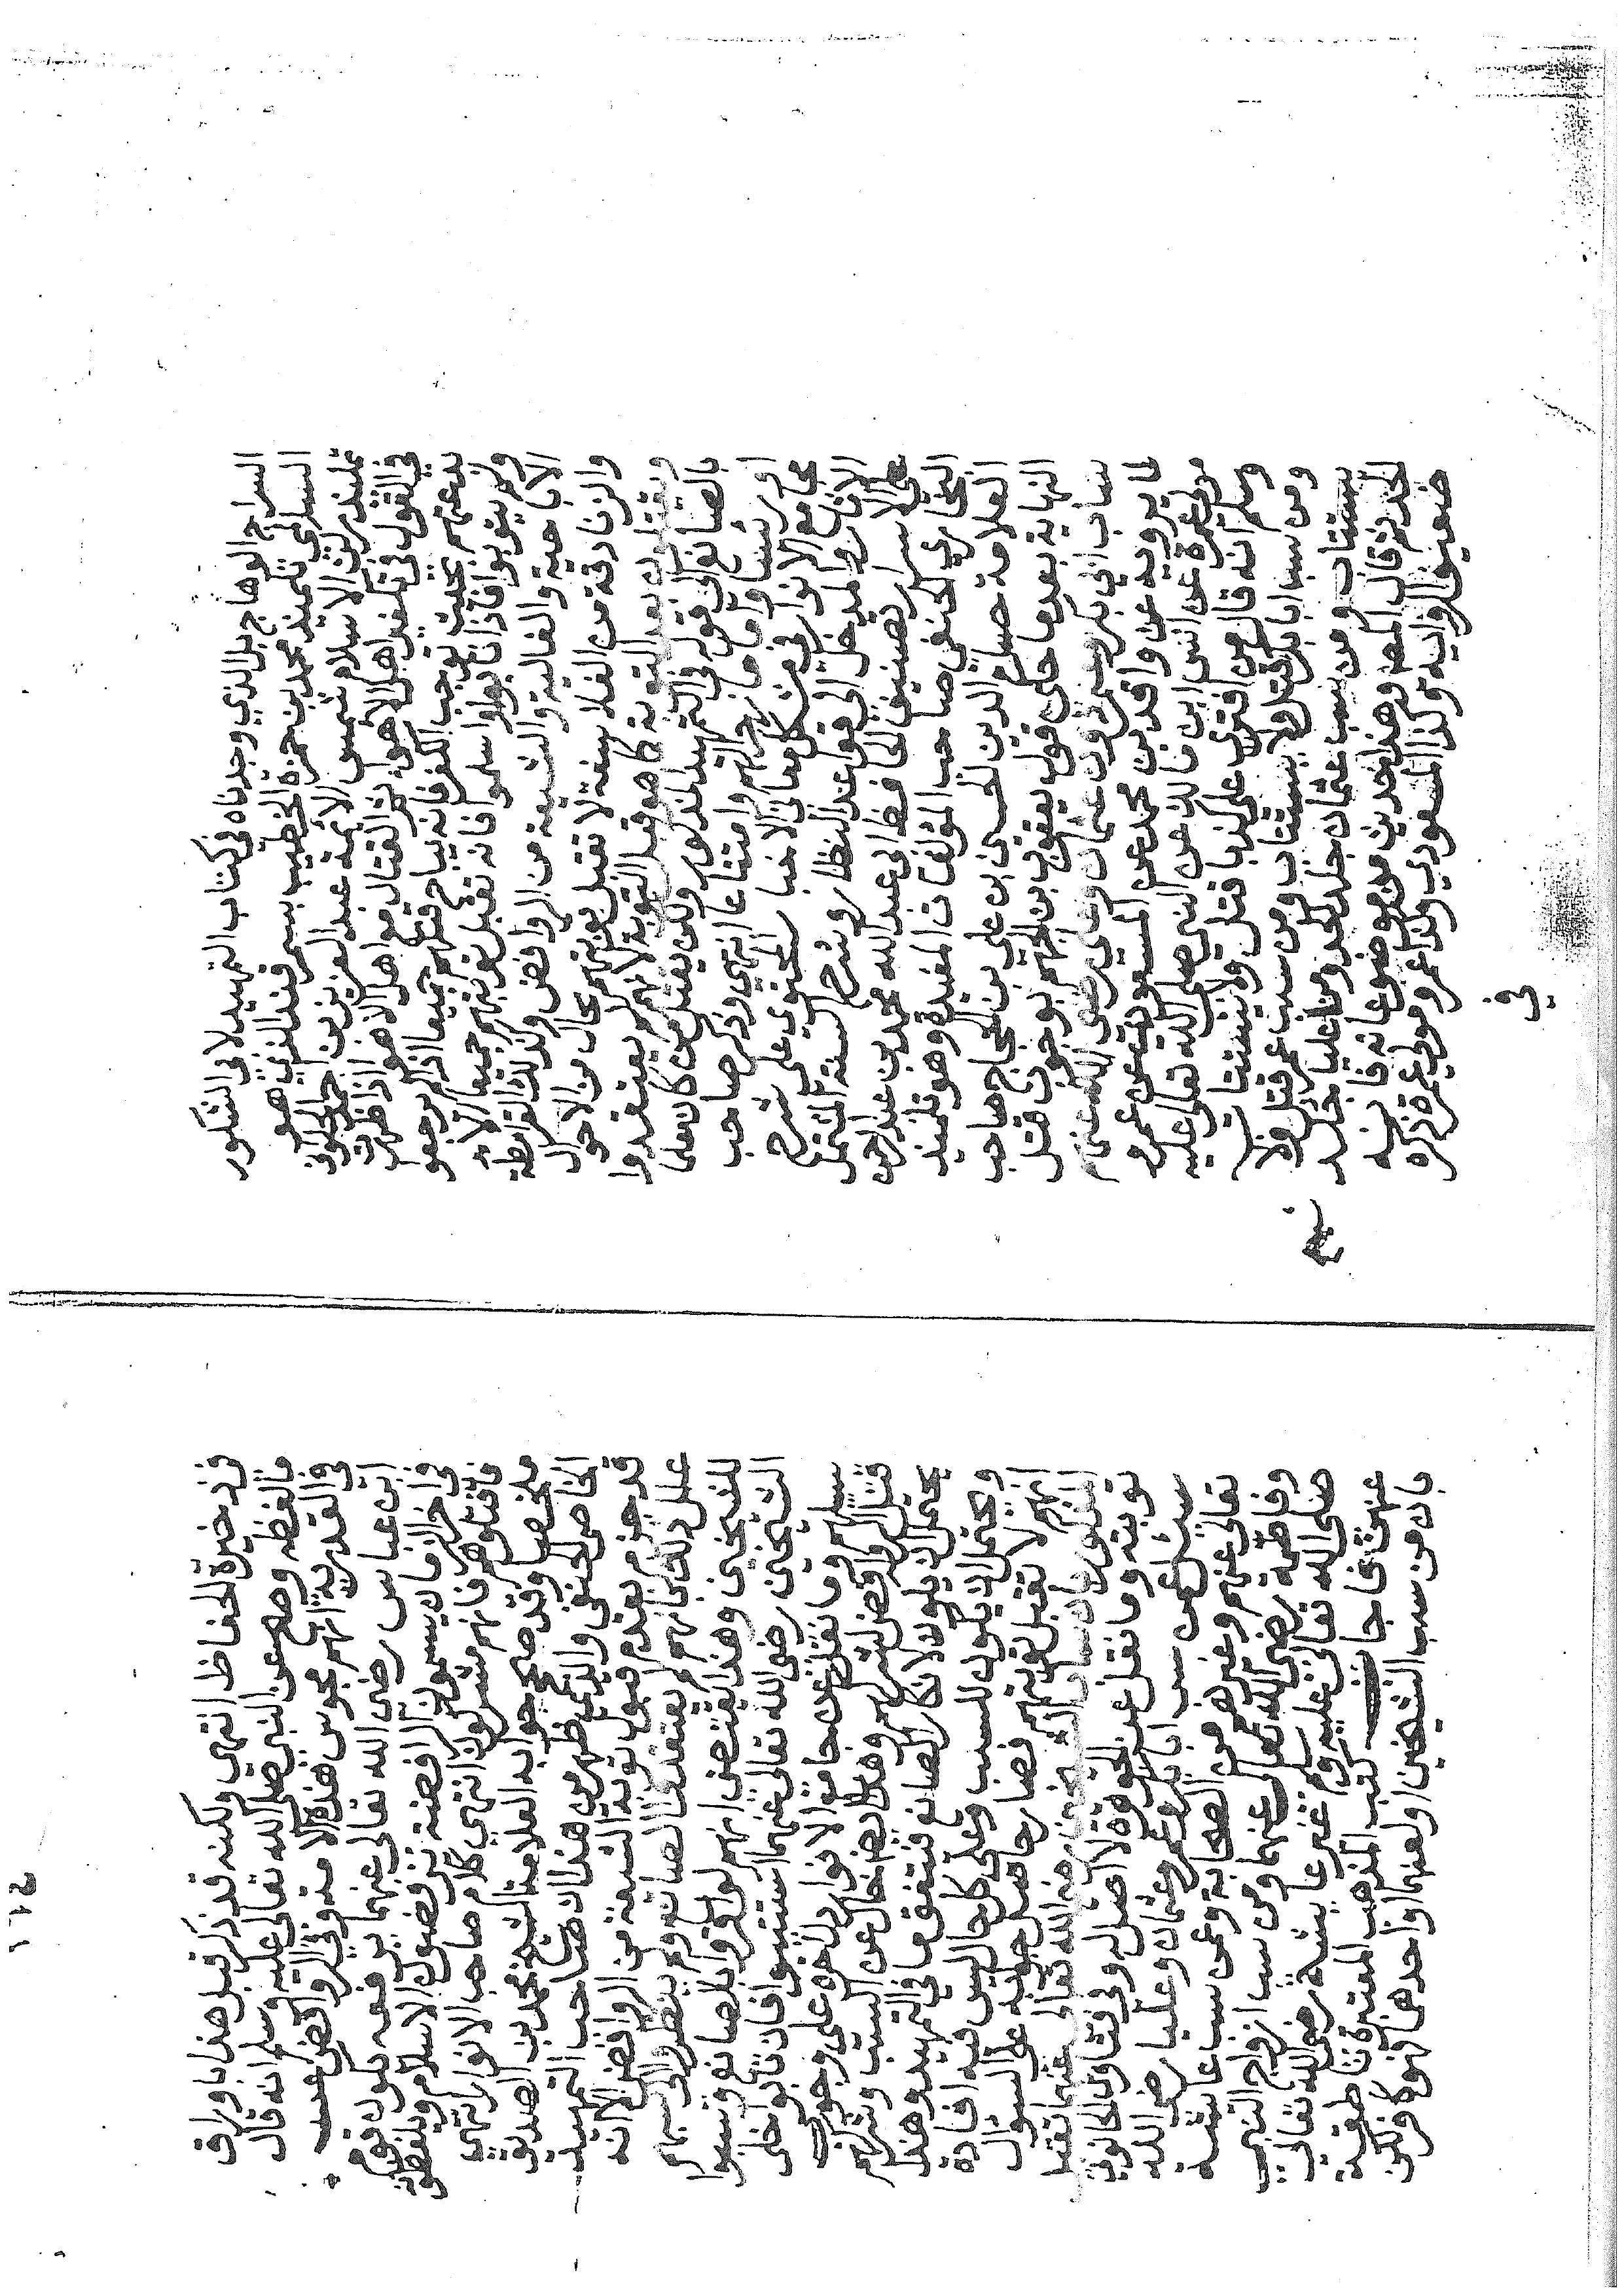 السراج الوهاج بل الذي وجدناه في كتاب التمهيد لابي الشكور
السالمي تلميذ محمد بن حمزة الخطيب بسمرقند الذي هو
تلميذ شمس الائمة عبد العزيز بن احمد الحلواني
في القول في تكفير اهل الاهواء ثم القتال مع اهل الاهواء اذا ظهرت
بدعتهم بحيث توجب الكفر فانه يباح قتلهم جميعا اذا لم يرجعوا
ولم يتوبوا فاذا تابوا واسلموا فانه تقبل توبتهم جميعا الا
الاباحية والغالية والشيعة من الروافض وكذلك القرامطة
والزنادقة من الفلاسفة لا تقبل توبتهم بحال من الاحوال
ويقتلون بعد التوبة كما هو قبل التوبة لانهم لم يعتقدوا
بالصانع الى قوله في التمهيد المذكور ولكن يقتل من كان معلما
او رئيسا واماما زجرا لهم وامتناعا انتهى وذكر صاحب
مجامع الانوار في مشكل معاني الاخبار المحتوي على شرح
الآثار والمدخل الى قواعد النظار وشرح السنة المشتمل
على الاسرار تصنيف الحافظ ابي عبد الله محمد بن عبد الرحمن
البخاري الحنفي صاحب المؤلفات المفيدة وهو تلميذ
العلامة حسام الدين الحسين بن علي بن الحجاج صاحب
النهاية بعدما حكى قول يعقوب بن الجهم بوجوب قتل
ساب ابي بكر وعمر وعثمان وعلي رضي الله عنهم
لما يرويه عن واقد بن محمد عن المسعودي عن عمر
مولى غمرة عن انس بن مالك عن النبي صلى الله تعالى عليه
وسلم انه قال من افترى علي كذبا قتل ولا يستتاب
ومن سب ابا بكر قتل ولا يستتاب ومن سب عمر قتل ولا
يستتاب ومن سب عثمان جلد الحد ومن سب عليا جلد
الحد ثم قال المصنف وهذا حديث موضوع آفاته فانه
ضعيف الرواية وكذا المسعودي وكذا عمر مولى غمرة ذكره
في
في ذخيرة الحفاظ انتهى ولكنه قد ذكر قبل هذا باوراق
ما لفظه وصح عن النبي صلى الله تعالى عليه وسلم انه قال
في القدرية انهم مجوس هذه الامة وفي الروافض عن
ابن عباس رضي الله تعالى عنهما يرفعه يكون قوم
في آخر الزمان يسمون الرافضة يرفضون الاسلام ويلفظونه
فاقتلوهم فانهم مشركون انتهى كلام صاحب الانوار انتهى
ملخصا وقد صحح جوابه العلامة الشيخ محمد بن الصديق
الخاص الحنفي والذي ظهر من هذا ان صاحب التمهيد
قد جزم بعدم قبول توبة الشيعة من الروافض الا انه
علل ذلك بانهم لم يعتقدوا الصانع ولم ينظر الى سبهم
للشيخين وهذا يقتضي انهم لو اقروا بالصانع وسبوا
الشيخين رضي الله تعالى عنهما استتيبوا فان تابوا خلي
سبيلهم وما نقل عن جامع الانوار دل آخره على وجوب
قتل الروافض لشركهم وهذا يضا خال عن السبب وشركهم
يحتمل ان يكون لانكار الصانع فيتفق ما في التمهيد وهذا
ويحتمل ان يكون للسب وعلى كل حال ليس فيه افادة
انهم لا تقبل توبتهم فصار حاصل جوابه على السؤال
المذكور بان ساب الشيخين رضي الله تعالى عنهما تقبل
توبته وما نقل عن الجوهرة لا اصل له وفي فتاوى الحانوتي
سئل عمن سب ابا بكر وعمر وعثمان وعليا رضي الله
تعالى عنهم وغيرهم من الصحابة وعمن سب عائشة
وفاطمة رضي الله تعالى عنهما ومن سب ازواج النبي
صلى الله تعالى عليه وسلم غير عائشة رضي الله تعالى
عنهن فاجاب كتب المذهب المعتبرة ناطقة
بان من سب الشيخين او لعنهما او احدهما فهو كافر لكن